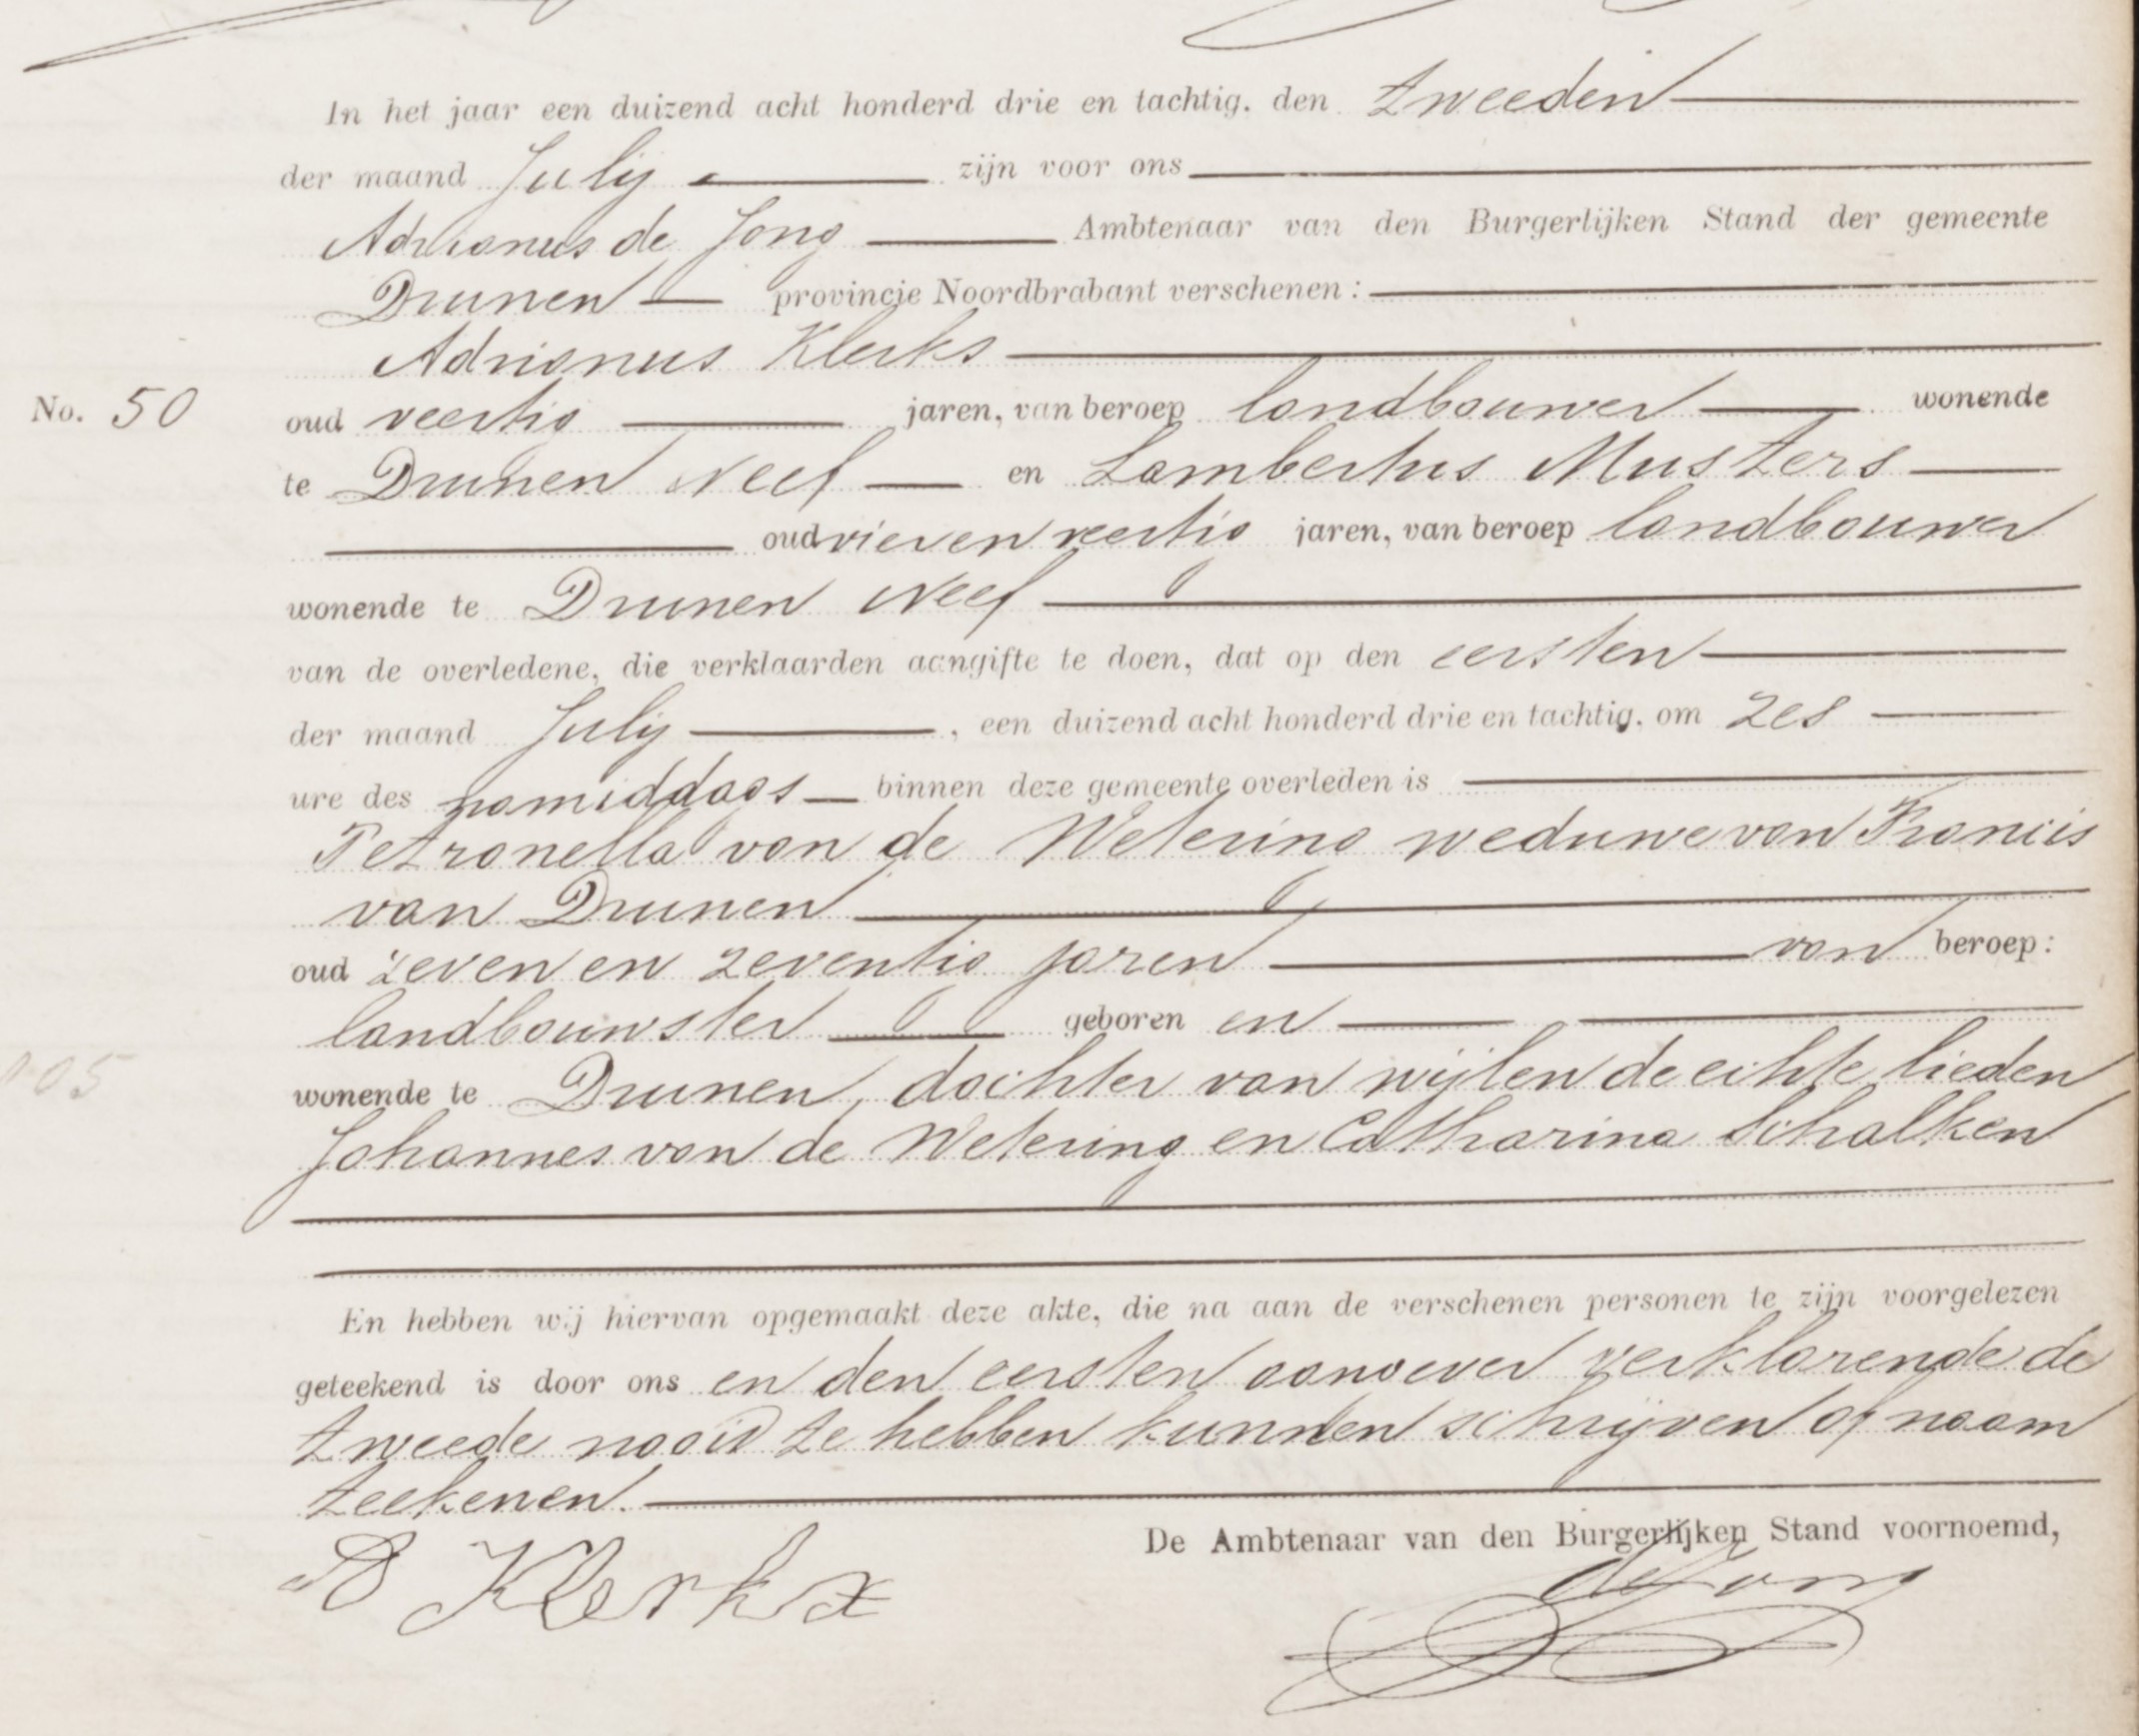 In het jaar een duizend acht honderd drie en tachtig, den tweeden
der maand July zijn voor ons
Adrianus de Jong Ambtenaar van den Burgerlijken Stand der gemeente
Drunen provincie Noordbrabant verschenen:
Adrianus Klerks
No. 50 oud veertig jaren, van beroep landbouwer wonende
te Drunen Neef en Lambertus Musters
oud vier en veertig jaren, van beroep landbouwer
wonende te Drunen Neef
van de overledene, die verklaarden aangifte te doen, dat op den eersten
der maand July, een duizend acht honderd drie en tachtig, om zes
ure des namiddags binnen deze gemeente overleden is
Petronella van de Wetering weduwe van Francis
van Drunen
oud zeven en zeventig jaren van beroep:
landbouwster geboren en
wonende te Drunen, dochter van wijlen de echte lieden
Johannes van de Wetering en Catharina Schalken
En hebben wij hiervan opgemaakt deze akte, die na aan de verschenen personen te zijn voorgelezen
geteekend is door ons en den eersten aangever verklarende de
tweede nooit te hebben kunnen schrijven of naam
teekenen.
De Ambtenaar van den Burgerlijken Stand voornoemd,
A Klerkx
de Jong